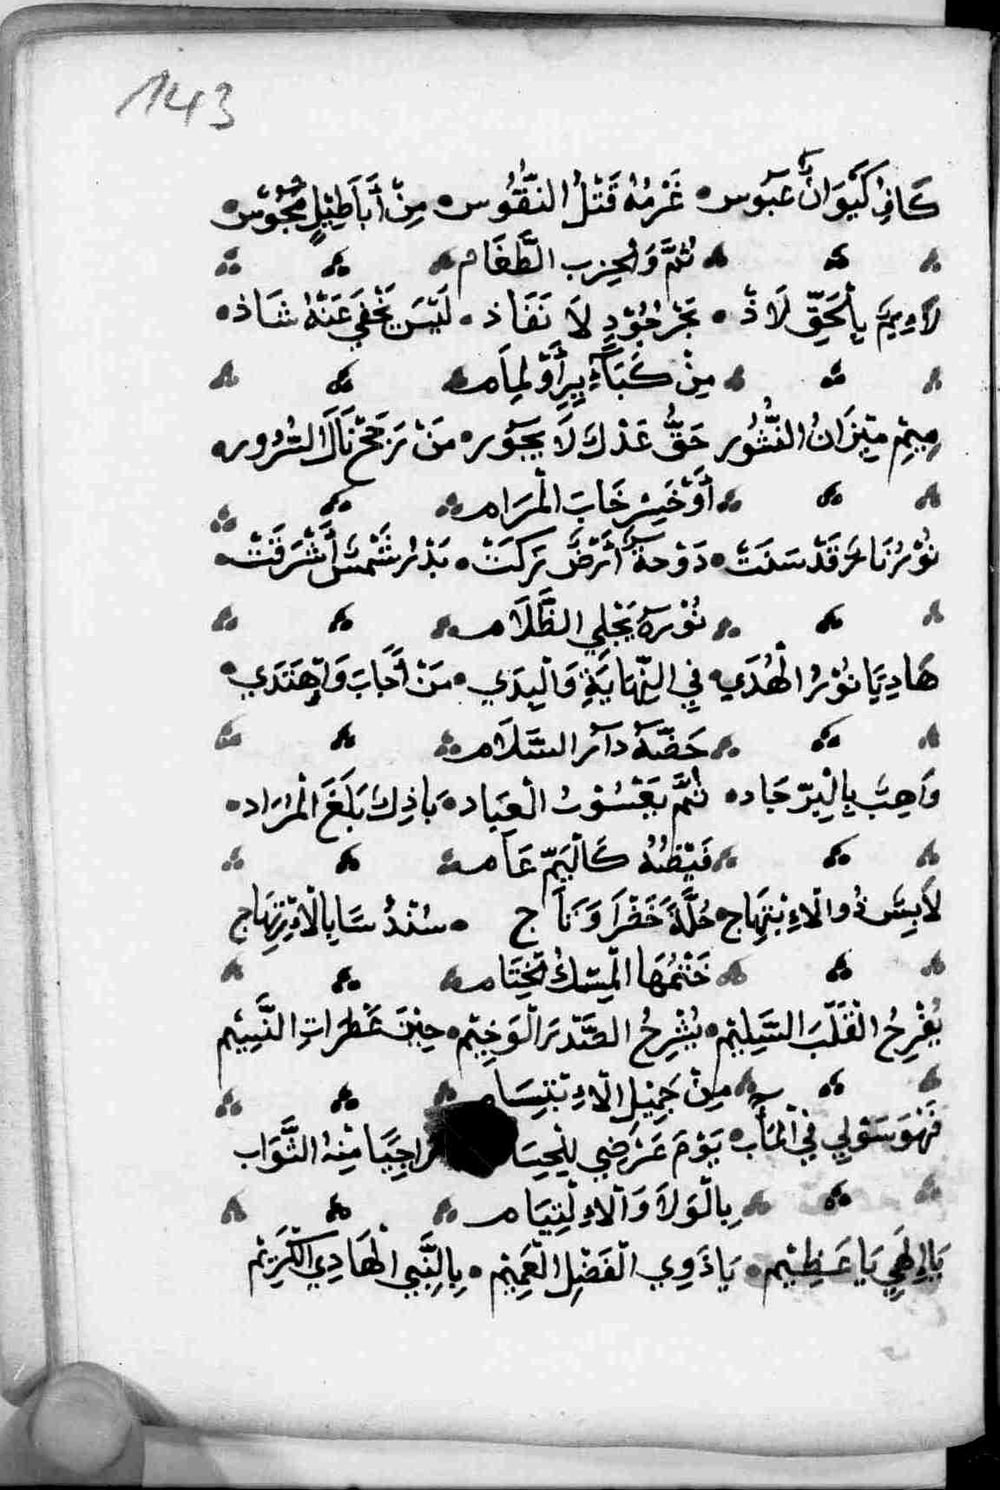 143
كَافِ كَيْوَانٌ عَبُوس • عَزْمُهُ قَتْلُ النُّفُوس • مِنْ أَبَاطِيْلٍ مَجُوْس •
ثُمَّ وَالْحِزب الطَّغَام
لَاوِيمٌ بِالْحَقِّ لَاذْ • بَحْرُ جُوْدٍ لَا نَفَاذ • لَيْسَ يَخْفَي عَنْهُ شَاذ •
مِنْ كَبَآءِيرٍ أَوْ لِمَام
مِيْمِ مِيْزَانُ النُّشُور حَقُّ عَدْلٍ لَا يَجُوْر • مَنْ تَرَجَّحْ نَالَ السُّرُور •
أَوْ خَسِرْ خَابَ الْمَرَام
نُوْرُ نَارٍ قَدْ سَنَتْ • دَوْحَةٌ أَرْضٍ زَكَتْ • بَدْرُ شَمْسٍ أَشْرَقَتْ •
نُوْرُهُ يَجْلِي الظَّلَام
هَادِ يَا نُوْرُ الْهُدَي • فِي النِّهَايَةِ وَالْبِدَي • مَنْ أَجَابَ وَاهْتَدَي •
حَقُّهُ دَآرُ السَّلَام
وَاهِبٌ بِالْبِرِّ جَاد • ثُمَّ يَعْسُوْبُ الْعِبَاد • بَاذِلٌ بَلَغَ الْمُرَاد •
فَيْضُهُ كَالْيَمِّ عَام
لَابِسٌ ذُو الْاءِبْتِهَاج • حُلَّةً خَضْرَا وَتَاج • سُنْدُسًا بِالْاِمْتِزَاج
خَتْمُهَا الْمِسْكُ الْخِتَام
يُفْرِحُ الْقَلْبَ السَّلِيْم • يُشْرِحُ الصَّدْرَ الْوَخِيْم • حِيْنَ عَطْرَاتِ النَّسِيْم
مِنْ جَمِيْلِ الْاءِبْتِسَام
فَهْوَ سَوْلِي فِي الْمَآب • يَوْمَ عَرْضِي لِلْحِسَا رَاجِيًا مِنْهُ الثَّوَاب
بِالْوَلَا وَالْاءِلْتِيَام
يَا إِلهِي يَا عَظِيْم • يَا ذَوِي الْفَضْلِ الْعَمِيْم • بِالنَّبِي الْهَادِي الْكَرِيْم